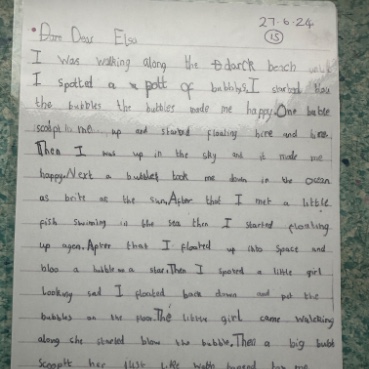 27.6.24
15
Dear Elsa
I was walking along the darck beach
I spotted a pott of bubbls. I started blow
the bubbles the bubbles made me happy. One buble
scoopt me up and started floating here and
Then I was up in the sky and it made me
happy. Next a bubbles took me down in the ocean
as brite as the sun. After that I met a little
fish swiming in the sea then I started floating
up agen. After that I floated up into space and
bloo a bubble a star. Then I spoted a little girl
looking sad I floated back down and put the
bubbles on the floor. The little girl came walcking
along she started blow the bubble. Then a big bubl
scoopt her just like